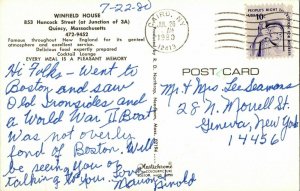 7-22-80
WINFIELD HOUSE
853 Hancock Street (at Junction of 3A)
Quincy, Massachusetts
472-9452
Famous throughout New England for its genial
atmosphere and excellent service.
Delicious food expertly prepared
Cocktail Lounge
EVERY MEAL IS A PLEASANT MEMORY
Hi Folks - Went to
Boston and saw
Old Ironsides and
a World War II Boat
Was not overly
fond of Boston. Will
be seeing you or
talking to you. Love
Marion
Arnold
CAIRO, NY
1980
12413
10c
POST CARD
Mr & Mrs. Lee Seamans
28 N. Monell St.
Geneva, New York
14456